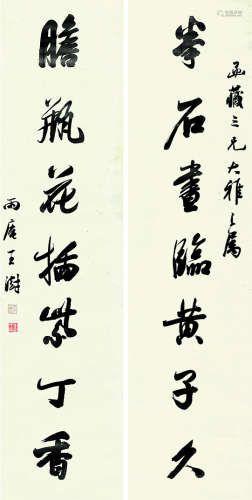 函藏三兄大雅之属
拳石画临黄子久
胆瓶花插紫丁香
雨庵王澍